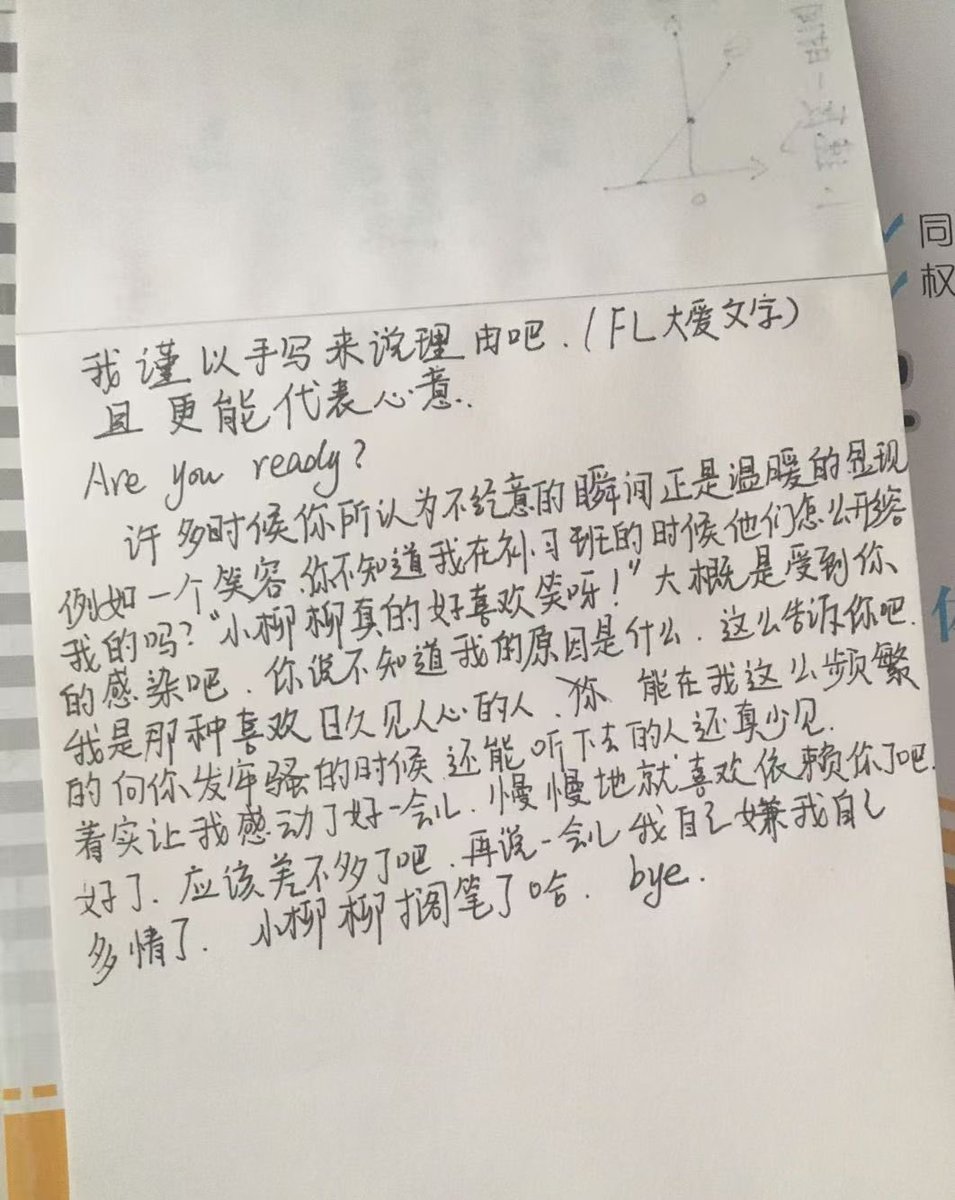 同
权
我谨以手写来说理由吧.(FL大爱文字)
且更能代表心意.
Are you ready?
许多时候你所认为不经意的瞬间正是温暖的显现
例如一个笑容.你不知道我在补习班的时候他们怎么形容
我的吗?"小柳柳真的好喜欢笑呀!"大概是受到你
的感染吧.你说不知道我的原因是什么.这么告诉你吧.
我是那种喜欢日久见人心的人.你 能在我这么频繁
的向你发牢骚的时候还能听下去的人还真少见.
着实让我感动了好一会儿.慢慢地就喜欢依赖你了吧.
好了.应该差不多了吧.再说一会儿我自己嫌我自己
多情了. 小柳柳搁笔了哈. bye.